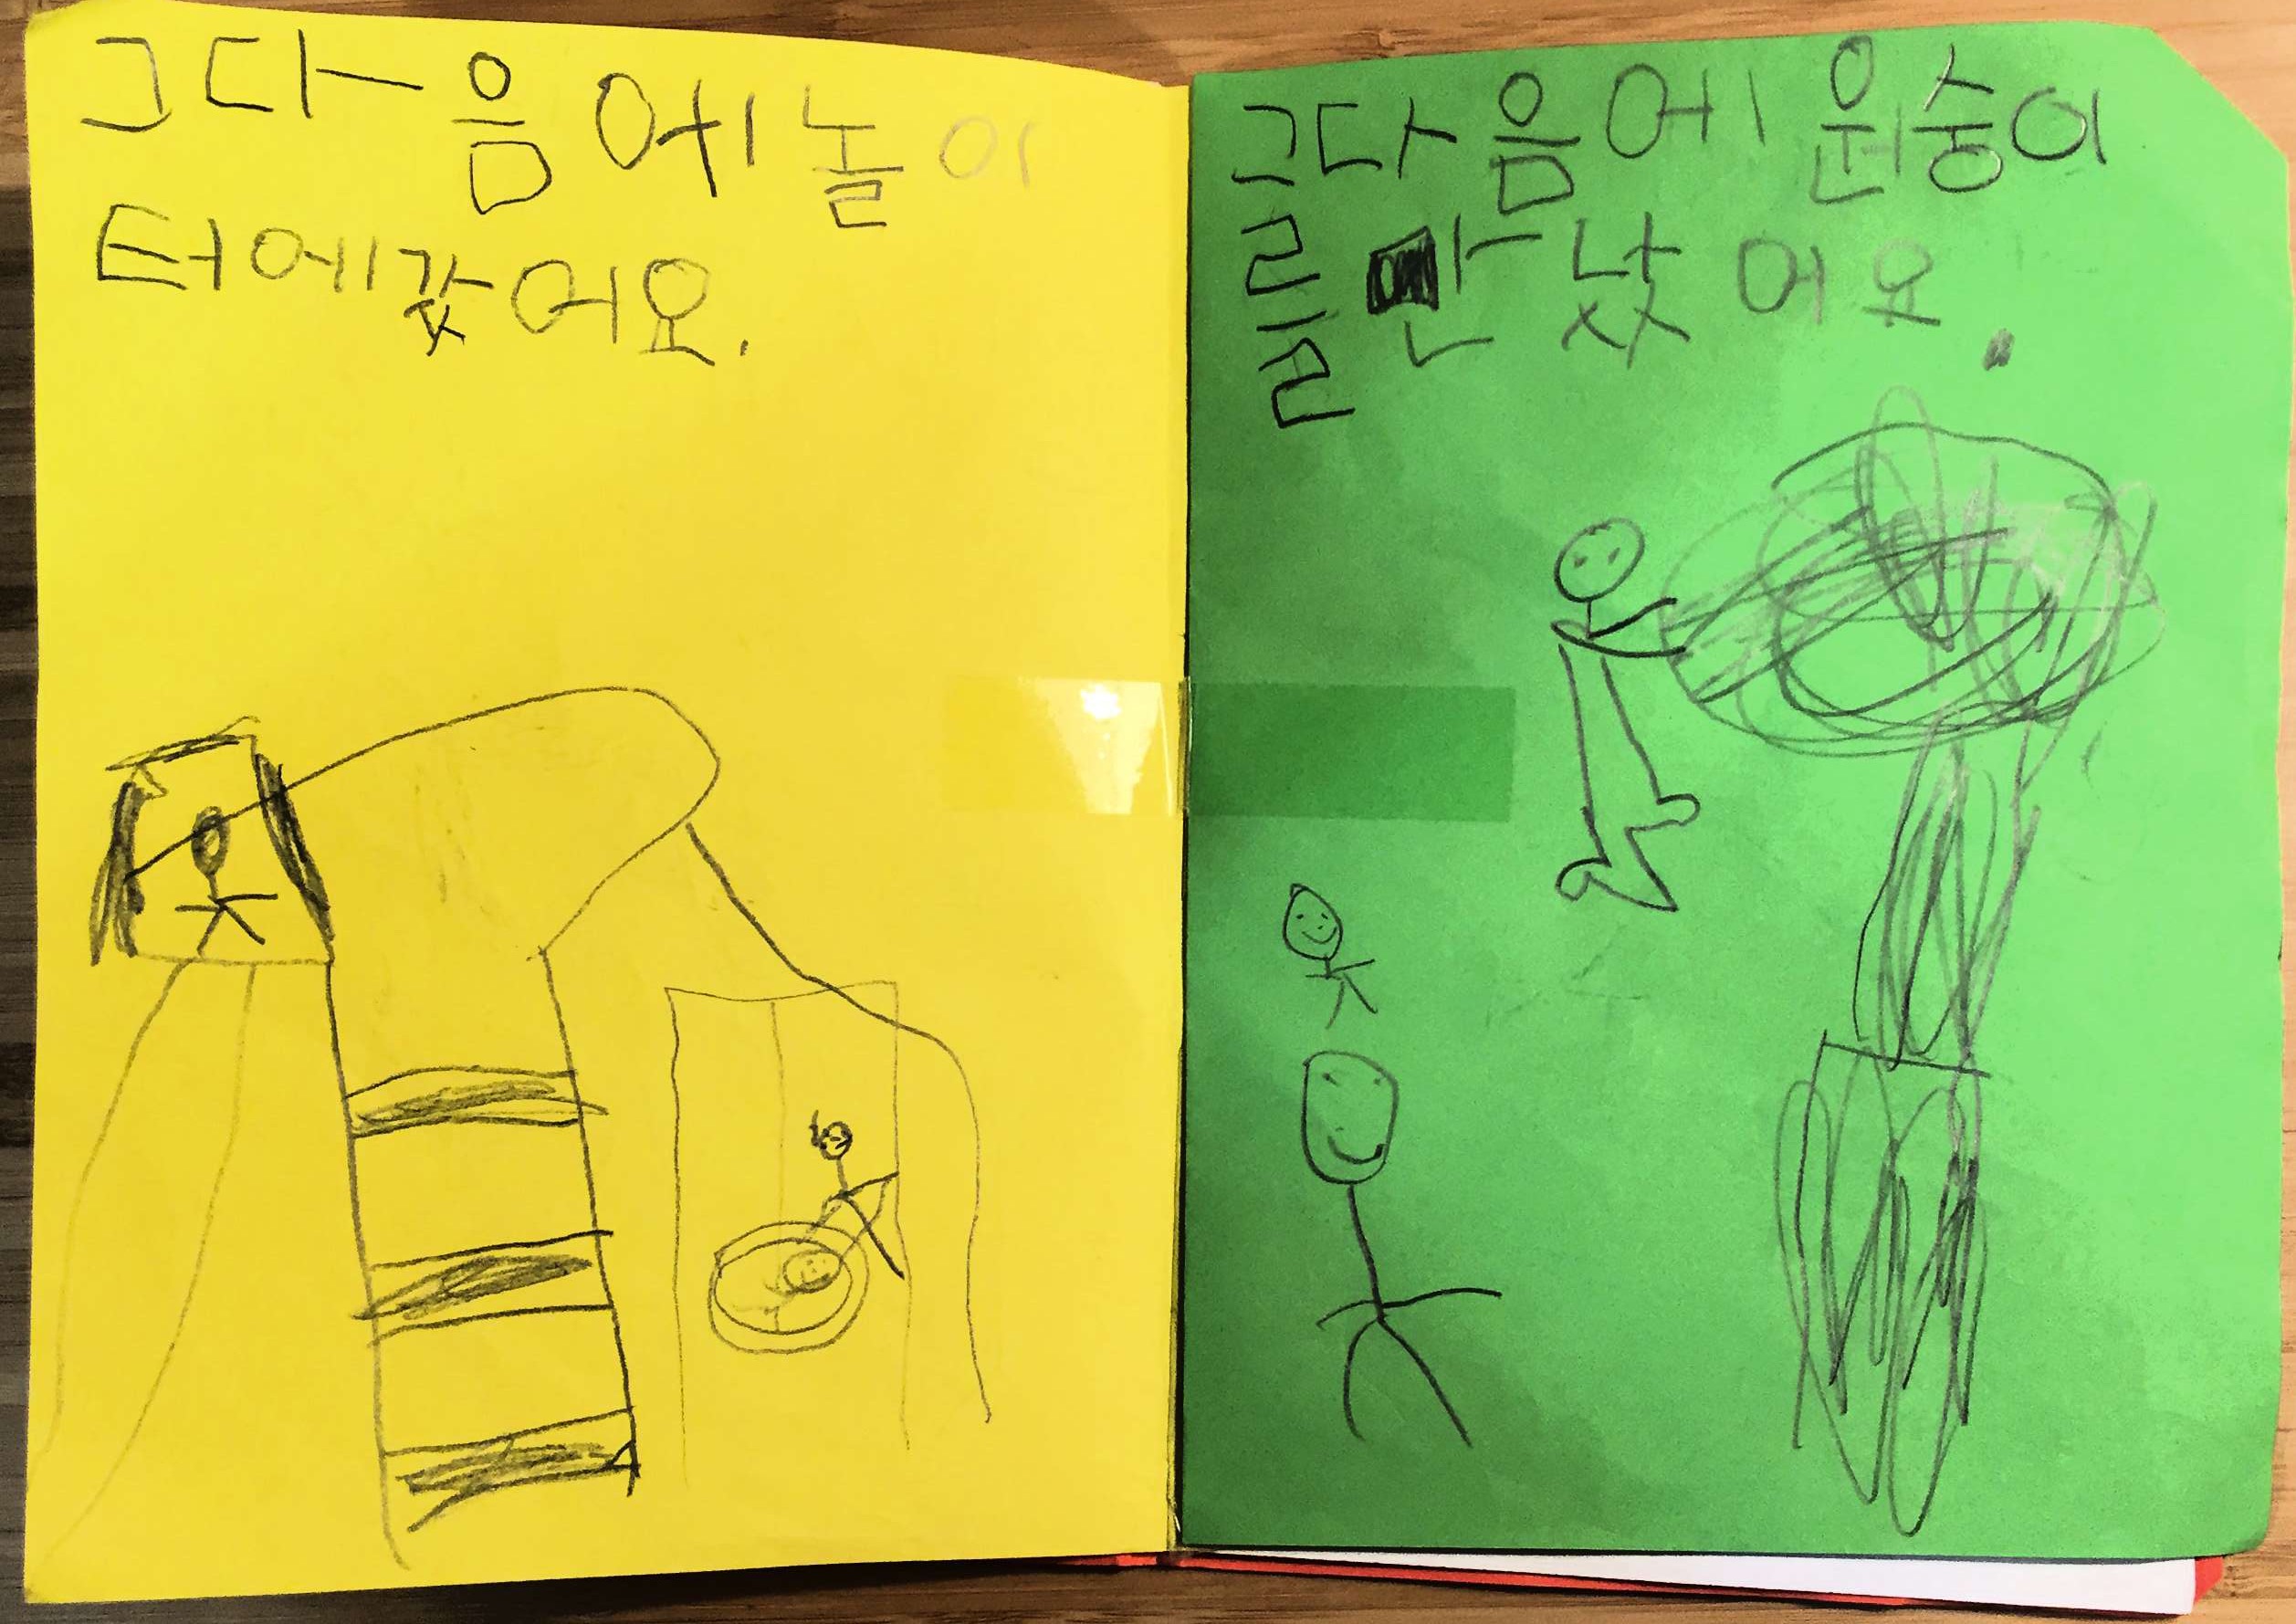 그다음에 놀이
터에갔어요.
그다음에 원숭이
를 만났어요.